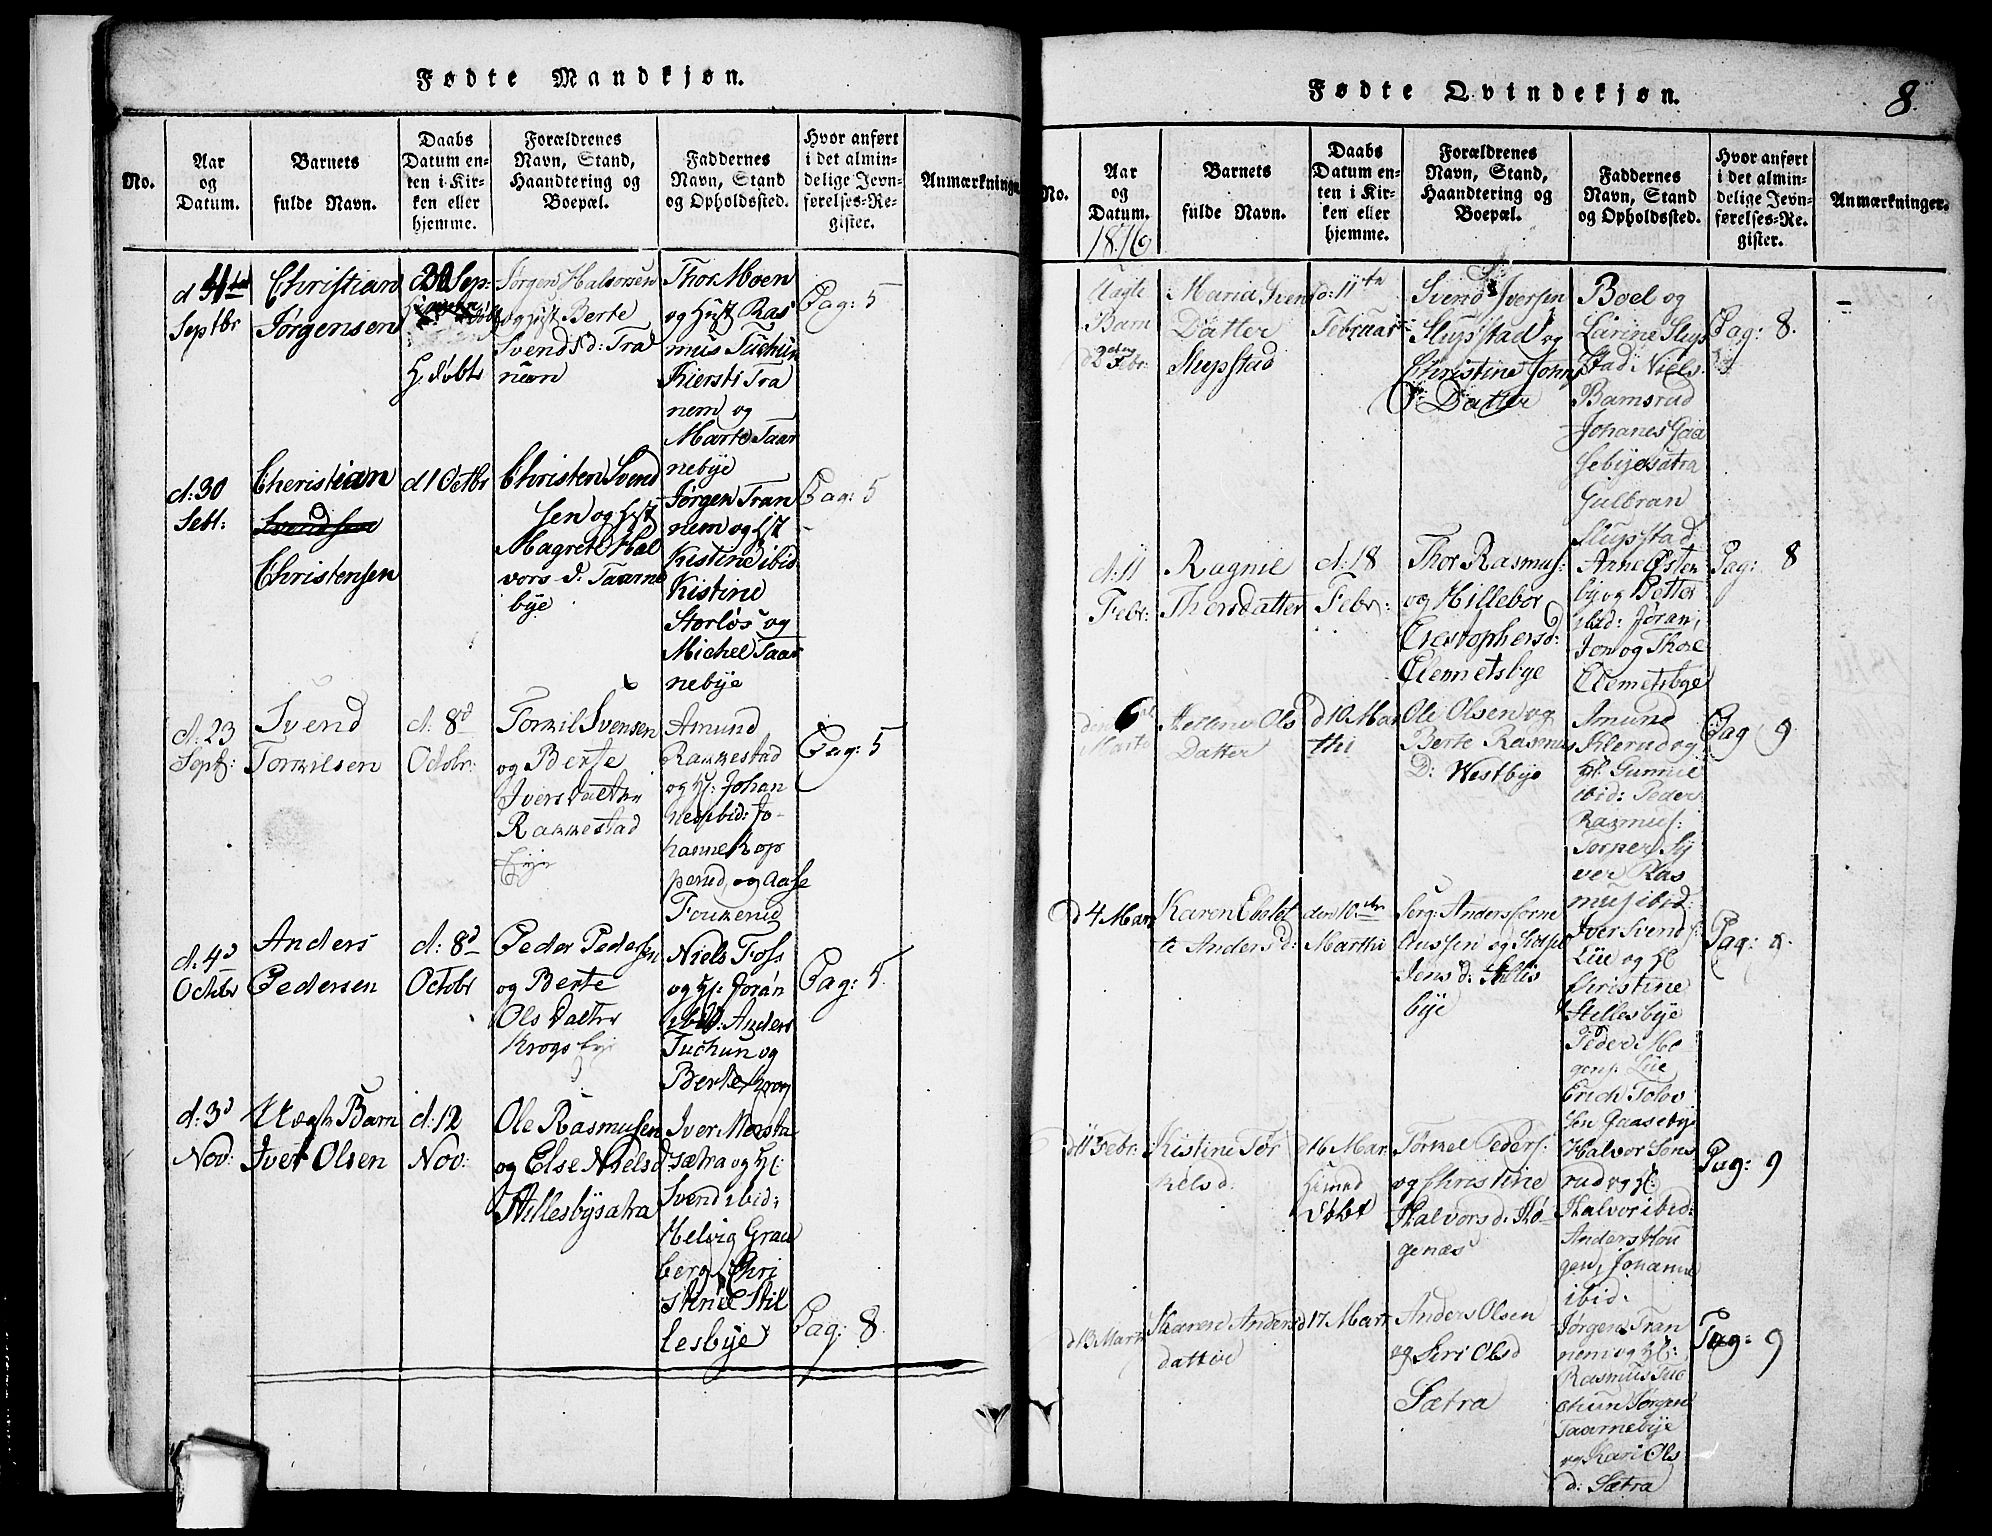 Fødte Mandkjøn.
No.
Aar
og
Datum.
Barnets
fulde Navn.
Daabs
Datum en-
ten i Kir-
ken eller
hjemme.
Forældrenes
Navn, Stand,
Haandtering og
Boepæl.
Faddernes
Navn, Stand
og Opholdssted.
Hvor anført
i det almin-
delige Jevn-
førelses-Re-
gister.
Anmærkninger
Septbr
Christian
Jørgensen
Sep:
H: døbt
Jørgen Halvorsen
og Hust Berte
Svends d: Tra
nem
Thor Moen
og Hust Ras
mus Tuchun
Kiersti Tra
nem og
Marte Taar
nebye
Pag: 5
d: 30
Sebt:
Cheristian
Svendsen
Christensen
d 1 Octbr
Christen Svend
sen og Hst
Magrete Hal
vors d: Taarne
bye
Jørgen Tran
nem og Hst
Kistine ibid
Kistine
Storløs og
Michel Taar
nebye
Pag: 5
d: 23
Sept:
Svend
Tormilsen
d: 8d
Octobr:
Tormil Svensen
og Berte
Ivers Datter
Rakkestad
Eje
Amund
Rakkestad
og H: Johan
nes ibid: Jo-
hanne Kop
perud, og Aase
Foukerud
Pag: 5
d: 4d
Octobr
Anders
Pedersen
d: 8d
Octobr
Peder Pedersen
og Berte
Ols Datter
Krogsbye
Niels Foss
og H: Joran
ibid: Anders
Tuchun og
Berte Krog
Pag: 5
d: 3d
Nov:
Uægte Barn
Iver Olsen
d: 12
Nov:
Ole Rasmusen
og Else Nielsd
Hillesbysætra
Iver Mørsta
sætra og H:
Svend ibid:
Helvig Grau
berg, Chri
stense Hil
lesbye
Pag: 8
Fødte Qvindekjøn.
8.
No.
Aar
og
Datum.
1816
Barnets
fulde Navn.
Daabs
Datum en-
ten i Kir-
ken eller
hjemme.
Forældrenes
Navn, Stand,
Haandtering og
Boepæl.
Faddernes
Navn, Stand
og Opholdssted.
Hvor anført
i det almin-
delige Jevn-
førelses-Re-
gister.
Anmærkninger.
Uægte
Barn
Febr:
Maria Svens
Datter
Slupstad
d: 11te
Februar
Svend Iversen
Slupstad og
Christine Johns
Datter
Boel og
Larine Slup
stad, Niels
Bamsrud
Johanes Gaa
sebyesætra
Gulbran
Slupstad
Pag: 8.
d: 11
Febr:
Ragnil
Thorsdatter
d: 18
Febr:
Thor Rasmus:
og Hillebor
Crestophersd:
Clemetsbye
Arne Østen
by og Petter
ibid: Jøran,
Jon og Thore
Clemetsbye
Pag: 8
den 6
Marti
Helene Ols
Datter
d 10 Mar
thi
Ole Olsen og
Berte Rasmus
D: Westbye
Amund
Klerud og
H: Gunnil
ibid: Peder
Rasmus:
Torper Sy
ver Ras
mus ibid:
Pag 9
d 4 Mar
Karen Ebelot
te Anders d:
den 10de
Marthi
Serg: Anders Torne
Claussen og Sidsel
Jens d: Hilis
bye
Iver Svends:
Lüe og H:
Siristine
Hillesbye
Peder Mo-
gens: Lüe
Erich Tolov
sen Gaasebye
Pag: 9.
d 11 Febr.
Kistine Tør
kels d:
d 16 Mar
hiemme
døbt
Tørkel Peders:
og Christine
Halvors d: Hø-
genæs
Halvor Sons
rud og H:
Halvor ibid:
Anders Hou
gen, Johanne
ibid:
Pag: 9
d 13 Marti
Karen Anders
datter
d 17 Mart
Anders Olsen
og Siri Olsd
Sætra
Jørgen Tran
nem og H:
Rasmus Tu
chun Jørgen
Taarnebye
og Kari Ols
d: Sætra
Pag: 9